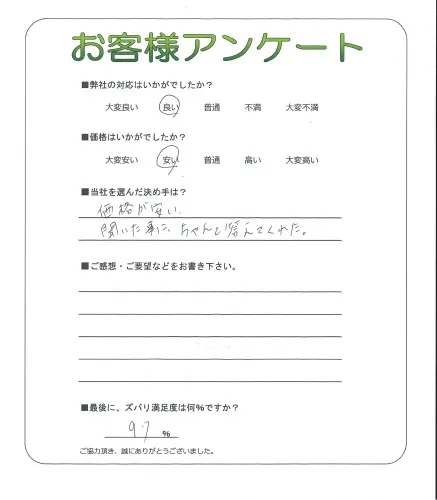 お客様アンケート
■弊社の対応はいかがでしたか？
大変良い 良い 普通 不満 大変不満
■価格はいかがでしたか？
大変安い 安い 普通 高い 大変高い
■当社を選んだ決め手は？
価格が安い
聞いた事に、ちゃんと答えてくれた。
■ご感想・ご要望などをお書き下さい。
■最後に、ズバリ満足度は何％ですか？
97 ％
ご協力頂き、誠にありがとうございました。